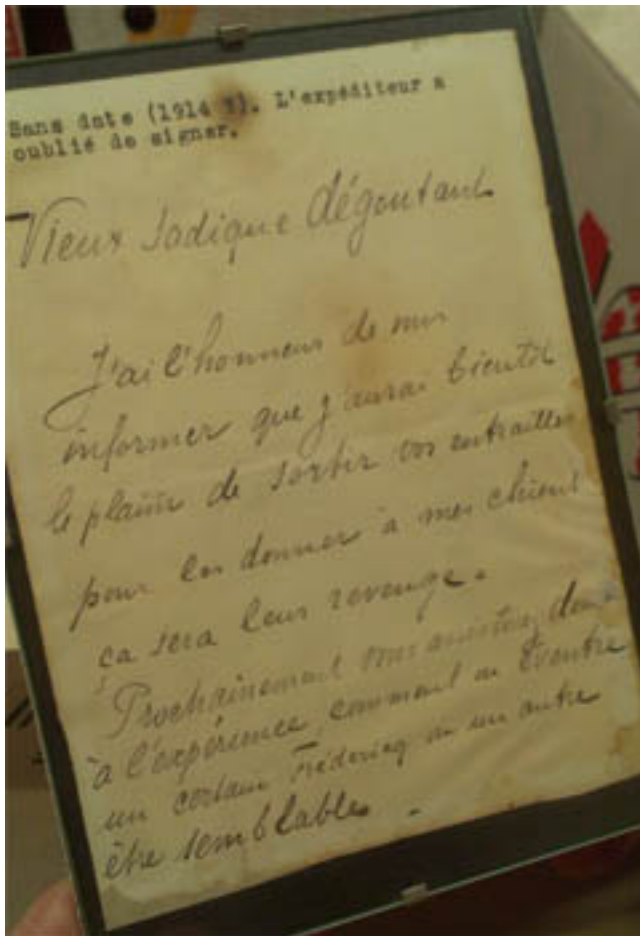 Sans date (1914 ?). L'expéditeur a
oublié de signer.
Vieux Sadique dégoutant
J'ai l'honneur de
informer que j'aurai bientôt
le plaisir de sortir vos entrailles
pour les donner à mes chiens
ça sera leur revenge.
Prochainement vous donc
à l'expérience, comment on éventre
un certain Frédericq ou un autre
être semblable.